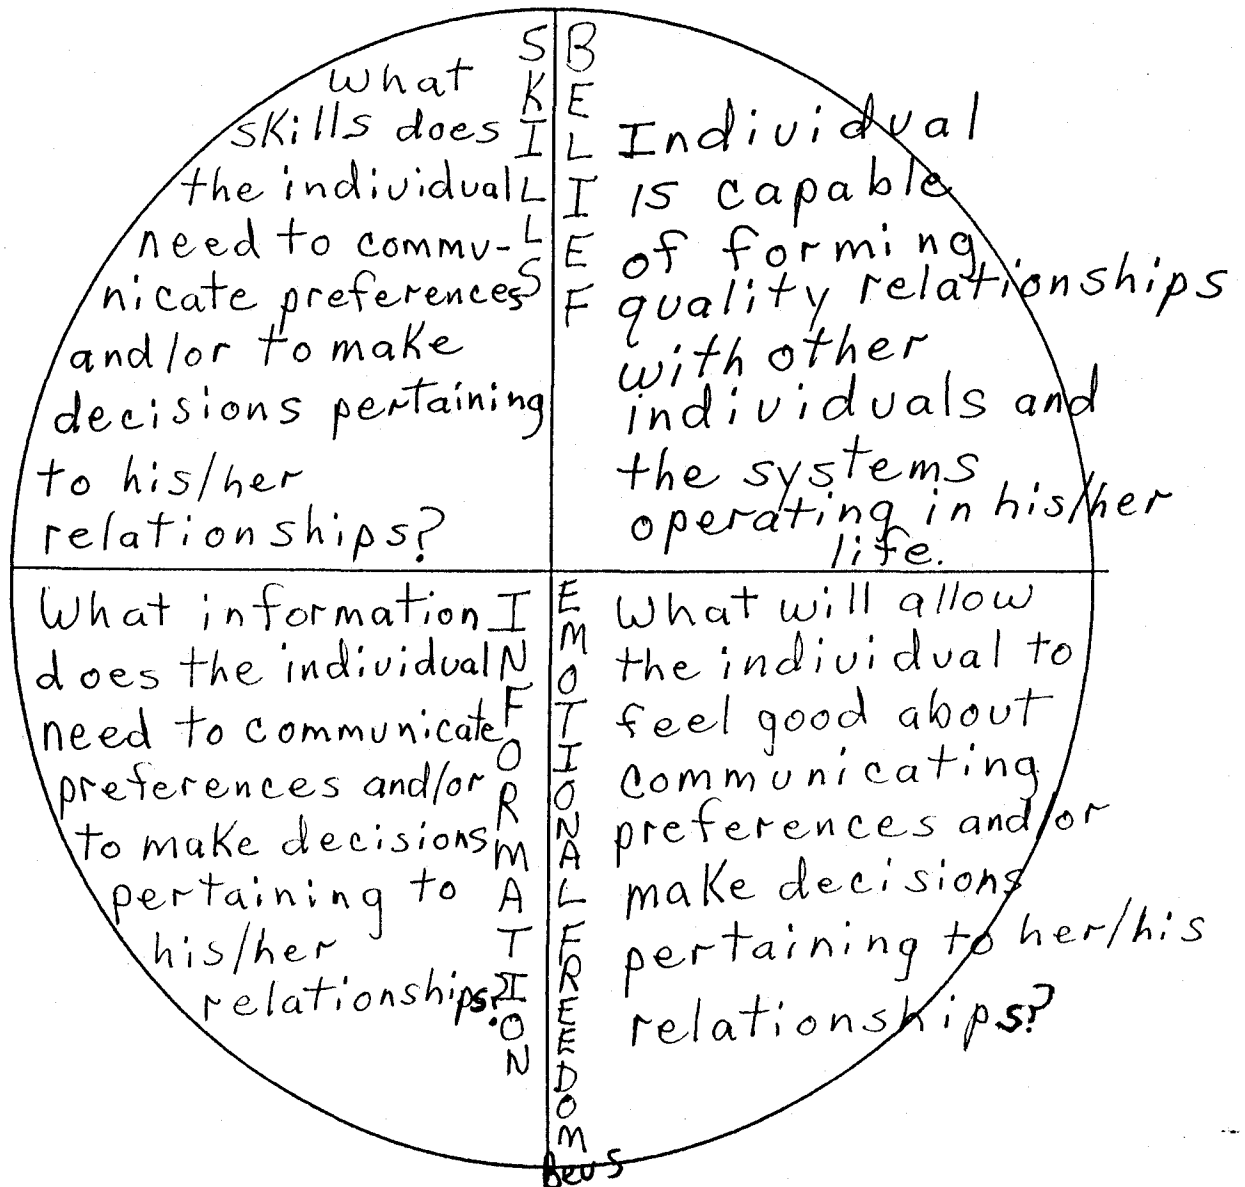 SKILLS
What
skills does
the individual
need to commu-
nicate preferences
and/or to make
decisions pertaining
to his/her
relationships?
BELIEF
Individual
is capable
of forming
quality relationships
with other
individuals and
the systems
operating in his/her
life.
INFORMATION
What information
does the individual
need to communicate
preferences and/or
to make decisions
pertaining to
his/her
relationships?
EMOTIONAL FREEDOM
What will allow
the individual to
feel good about
communicating
preferences and/or
make decisions
pertaining to her/his
relationships?